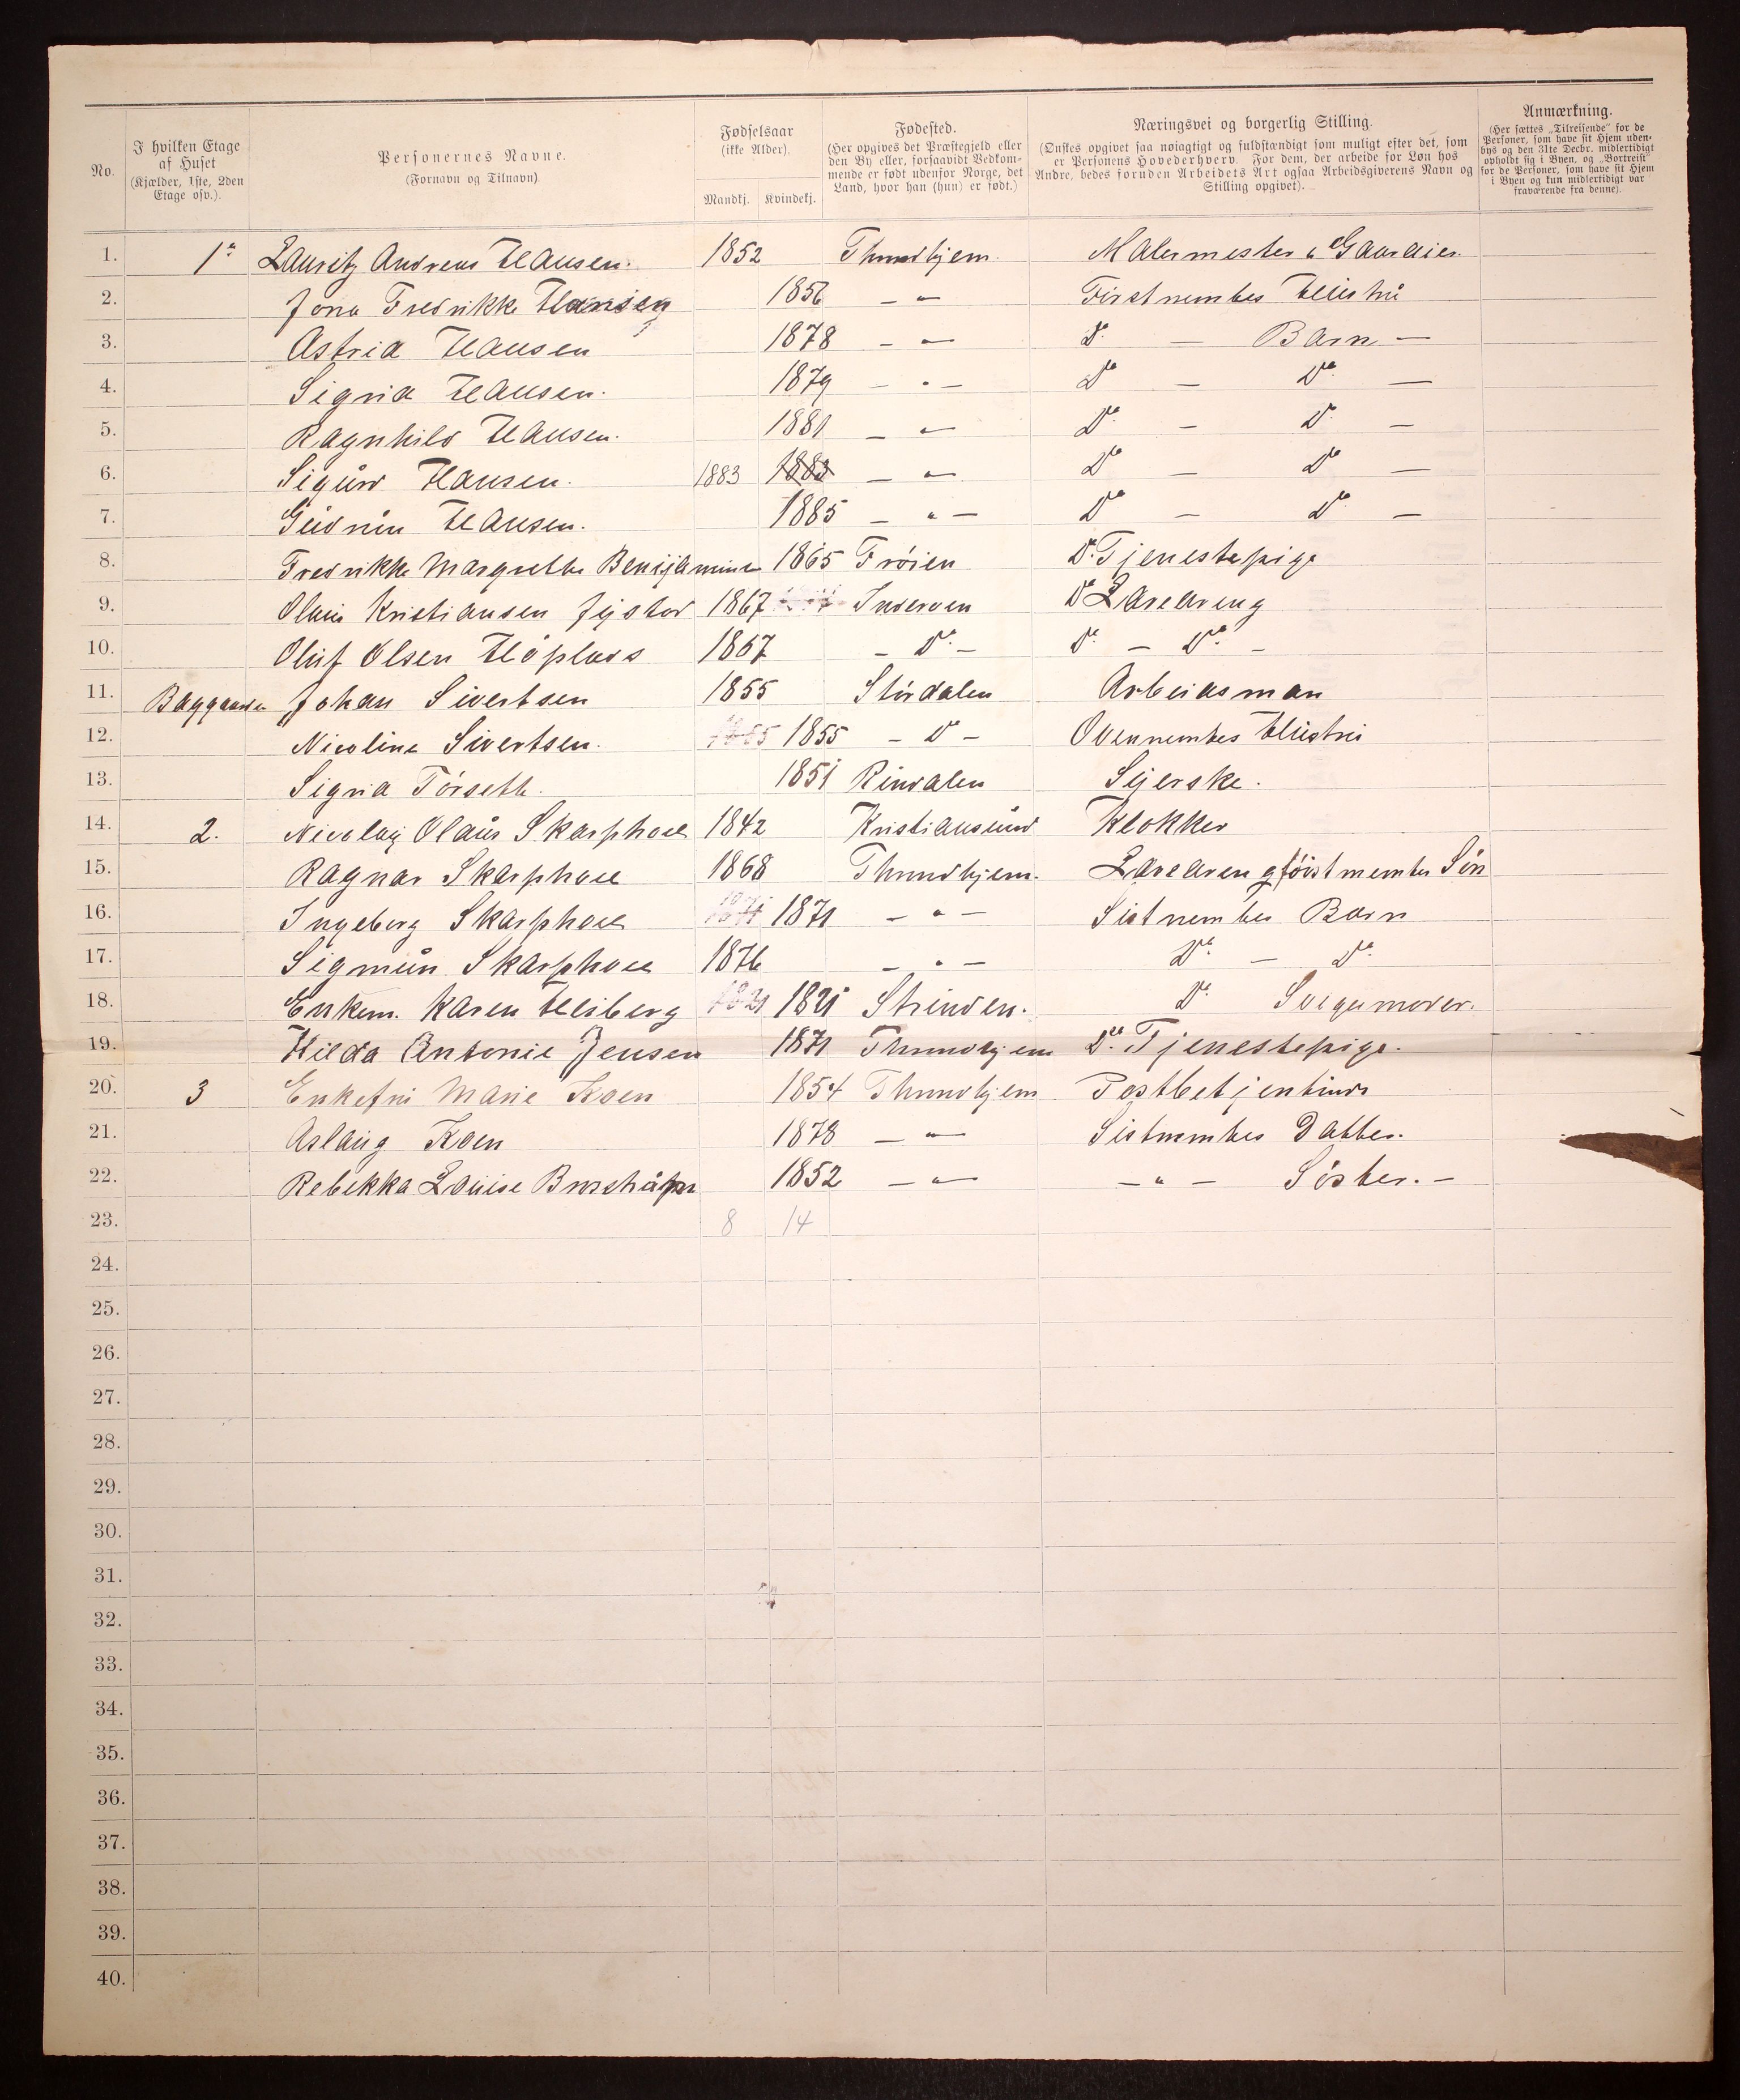 No.
I hvilken Etage af Huset (Kjælder, 1ste, 2den Etage osv.).
Personernes Navne. (Fornavn og Tilnavn).
Fødselsaar (ikke Alder). Mandkj. Kvindekj.
Fødested. (Her opgives det Præstegjeld eller den By eller, forsaavidt Vedkommende er født udenfor Norge, det Land, hvor han (hun) er født.)
Næringsvei og borgerlig Stilling. (Ønskes opgivet saa nøiagtigt og fuldstændigt som muligt efter det, som er Personens Hovederhverv. For dem, der arbeide for Løn hos Andre, bedes foruden Arbeidets Art ogsaa Arbeidsgiverens Navn og Stilling opgivet).
Anmærkning. (Her sættes „Tilreisende“ for de Personer, som have sit Hjem udenbys og den 31te Decbr. midlertidigt opholdt sig i Byen, og „Bortreist“ for de Personer, som have sit Hjem i Byen og kun midlertidigt var fraværende fra denne).
1. 1ª Lauritz Andreas Hansen. 1852 Throndhjem. Malermester & Gaardeier.
2. Jona Fredrikke Hansen 1856 — " — Førstnemtes Hustru
3. Astrid Hansen 1878 — " — Dº — Barn —
4. Sigrid Hansen. 1879 — " — Dº — Dº —
5. Ragnhild Hansen. 1881 — " — Dº — Dº —
6. Sigurd Hansen. 1883 1883 — " — Dº — Dº —
7. Gudrun Hansen. 1885 — " — Dº — Dº —
8. Fredrikke Margrethe Benjamine 1865 Frøien Dº Tjenestepige
9. Olaus Kristiansen 1867 Inderøen Dº Læredreng
10. Oluf Olsen Høplass 1867 — Dº — Dº — Dº —
11. Baggaarden Johan Sivertsen 1855 Stördalen Arbeidsman
12. Nicoline Sivertsen. 1855 1855 — D — Ovennemtes Hustru
13. Sigrid Törseth. 1851 Rindalen Syerske.
14. 2. Nicolay Olaus Skarphoel 1842 Kristiansund Klokker
15. Ragnar Skarphoel 1868 Throndhjem. Læredreng førstnemtes Sön
16. Ingeborg Skarphoel 1871 1871 — " — Sistnemtes Barn
17. Sigmun Skarphoel 1876 — " — Dº — Dº
18. Enkem. Karen Heiberg 1821 1821 Strinden. Dº Svigermoder.
19. Hilda Antonie Jensen 1871 Throndhjem Dº Tjenestepige.
20. 3 Enkefru Marie Koen 1854 Throndhjem Postbetjentinde
21. Aslaug Koen 1878 — " — Sistnemtes Datter.
22. Rebekka Louise 1852 — " — — " — Söster. —
23. 8 14
24.
25.
26.
27.
28.
29.
30.
31.
32.
33.
34.
35.
36.
37.
38.
39.
40.